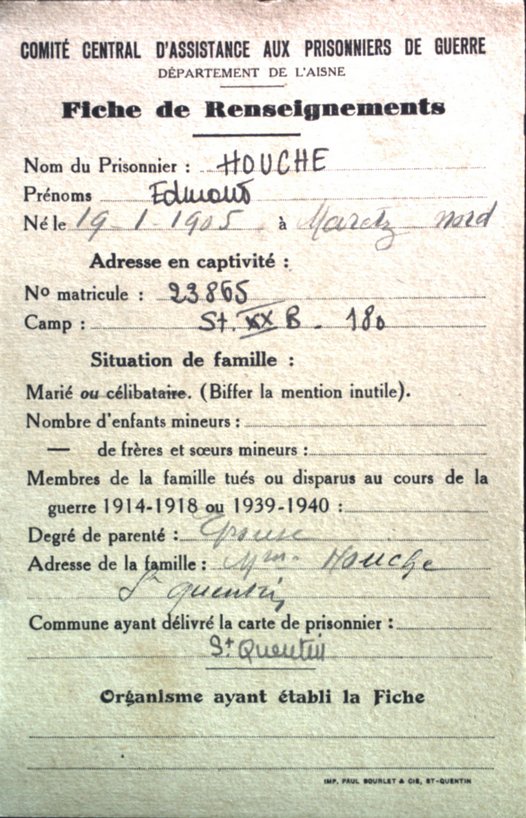 COMITÉ CENTRAL D'ASSISTANCE AUX PRISONNIERS DE GUERRE
DÉPARTEMENT DE L'AISNE
Fiche de Renseignements
Nom du Prisonnier : HOUCHE
Prénoms Edmont
Né le 19-1-1905 à Maretz nord
Adresse en captivité :
No matricule : 23865
Camp : St. XX B - 180
Situation de famille :
Marié ou célibataire. (Biffer la mention inutile).
Nombre d'enfants mineurs :
— de frères et sœurs mineurs :
Membres de la famille tués ou disparus au cours de la
guerre 1914-1918 ou 1939-1940 :
Degré de parenté : Epouse
Adresse de la famille : Mme Houche
St quentin
Commune ayant délivré la carte de prisonnier :
St Quentin
Organisme ayant établi la Fiche
IMP. PAUL BOURLET & CIE, ST-QUENTIN